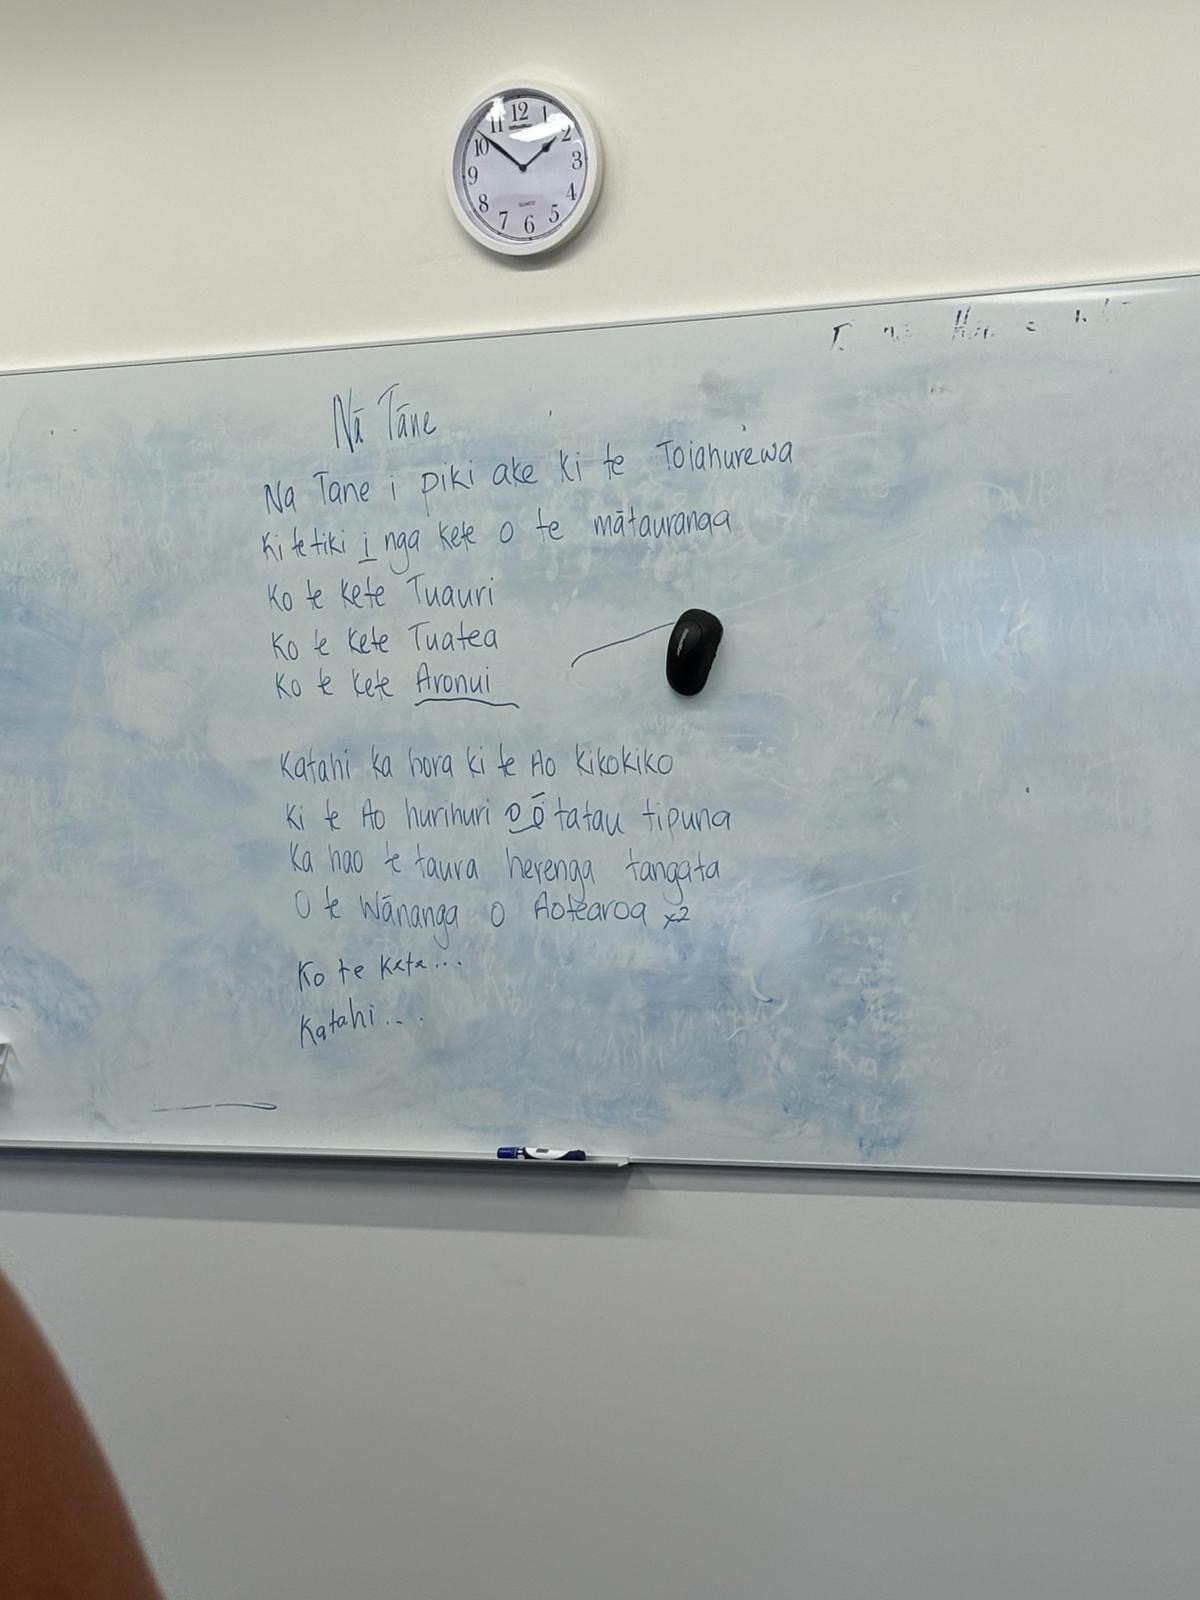 12
11 1
10 2
9 3
8 4
7 5
6
QUARTZ
Nā Tāne
Na Tane i piki ake ki te Toiahurewa
Ki te tiki i nga kete o te mātauranga
Ko te kete Tuauri
Ko te kete Tuatea
Ko te kete Aronui
Katahi ka hora ki te Ao kikokiko
Ki te Ao hurihuri o ō tatau tipuna
Ka hao te taura herenga tangata
O te Wānanga o Aotearoa x2
Ko te kete...
Katahi....